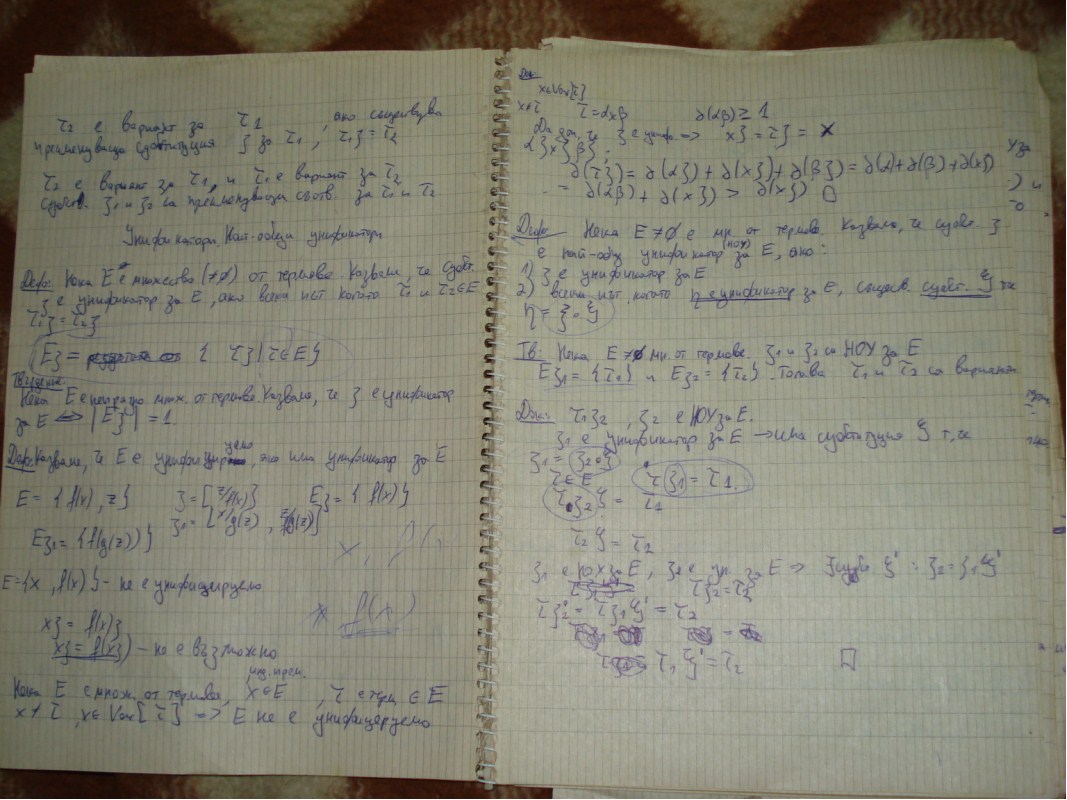 τ2 е вариант за τ1, ако съществува
преименуваща субституция ξ за τ1, τ1ξ = τ2
τ2 е вариант за τ1, и τ1 е вариант за τ2
ξ1 и ξ2 са преименуващи за τ1 и τ2
Унификатори. Най-общи унификатори
Деф: Нека E е множество (≠∅) от термове. Казваме, че субст.
ξ е унификатор за E, ако всеки път когато τ1 и τ2 ∈ E
τ1ξ = τ2ξ
Eξ = { τξ | τ∈E }
Твърдение:
Нека E е непразно множ. от термове. Казваме, че ξ е унификатор
за E <=> |Eξ| = 1.
Деф: Казваме, че E е унифицируемо, ако има унификатор за E
E = { f(x), z } ξ = [z/f(x)] Eξ = { f(x) }
ξ1 = [x/g(z), z/f(g(z))]
Eξ1 = { f(g(z)) }
E = {x, f(x)} - не е унифицируемо
xξ = f(x)ξ
xξ = f(xξ) - не е възможно
инд. пром.
Нека E е множ. от термове, x∈E, τ е терм ∈ E
x ≠ τ, x∈Var[τ] => E не е унифицируемо
Док:
x∈Var[τ]
x≠τ τ = αxβ ∂(αβ) ≥ 1
Да доп. че ξ е униф. => xξ = τξ =
αξxξβξ
∂(τξ) = ∂(αξ) + ∂(xξ) + ∂(βξ) = ∂(α)+∂(β)+∂(xξ)
= ∂(αβ) + ∂(xξ) > ∂(xξ) □
Деф: Нека E ≠ ∅ е мн. от термове. Казваме, че субст. ξ
е най-общ унификатор (НОУ) за E, ако:
1) ξ е унификатор за E
2) всеки път, когато η е унификатор за E, същест. субст. ξ' че
η = ξ∘ξ'
Тв: Нека E ≠ ∅ мн. от термове. ξ1 и ξ2 са НОУ за E
Eξ1 = {τ1} и Eξ2 = {τ2}. Тогава τ1 и τ2 са варианти
Док: τ1ξ2, ξ2 е НОУ за E.
ξ1 е унификатор за E → има субституция ξ' т, че
ξ1 = ξ2∘ξ'
τ∈E τξ1 = τ1.
τξ2ξ' = τ1
τ2ξ' = τ2
ξ1 е НОУ за E, ξ2 е ун. за E => ξ' : ξ2 = ξ1ξ'
τξ2 = τ2
τξ2 = τξ1ξ' = τ2
τ1ξ' = τ2 □